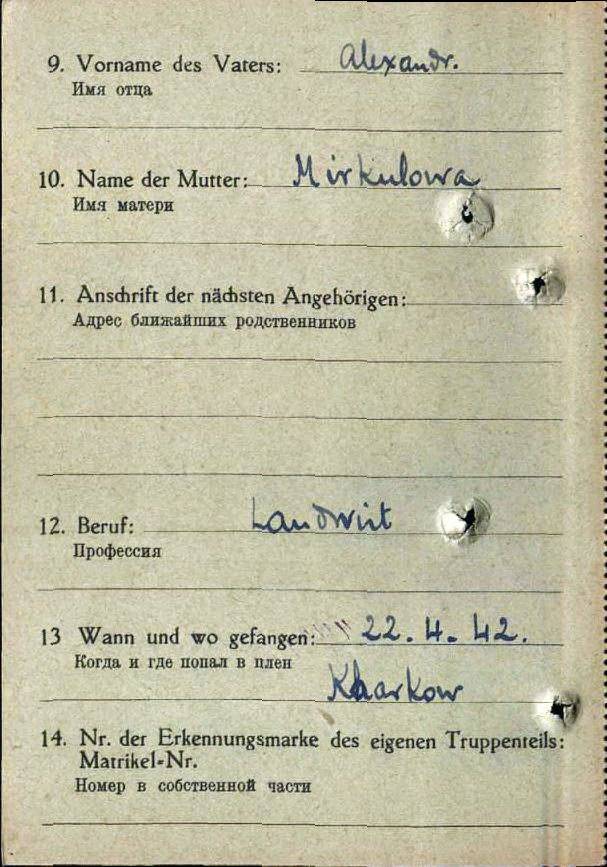 9. Vorname des Vaters: Alexandr.
Имя отца
10. Name der Mutter: Mirkulowa
Имя матери
11. Anschrift der nächsten Angehörigen:
Адрес ближайших родственников
12. Beruf: Landwirt
Профессия
13 Wann und wo gefangen: 22.4.42.
Когда и где попал в плен
Kharkow
14. Nr. der Erkennungsmarke des eigenen Truppenteils:
Matrikel-Nr.
Номер в собственной части